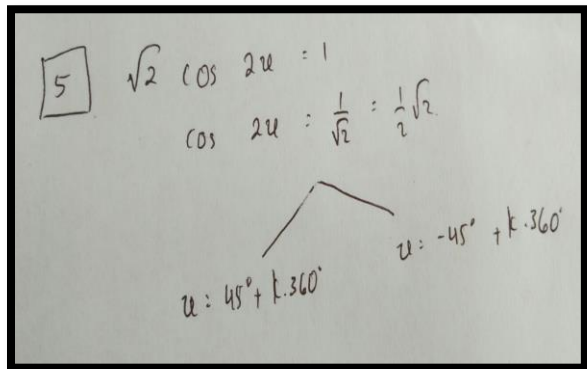 5 √2 cos 2x = 1
cos 2x = 1/√2 = 1/2 √2
x = 45° + k.360°
x = -45° + k.360°